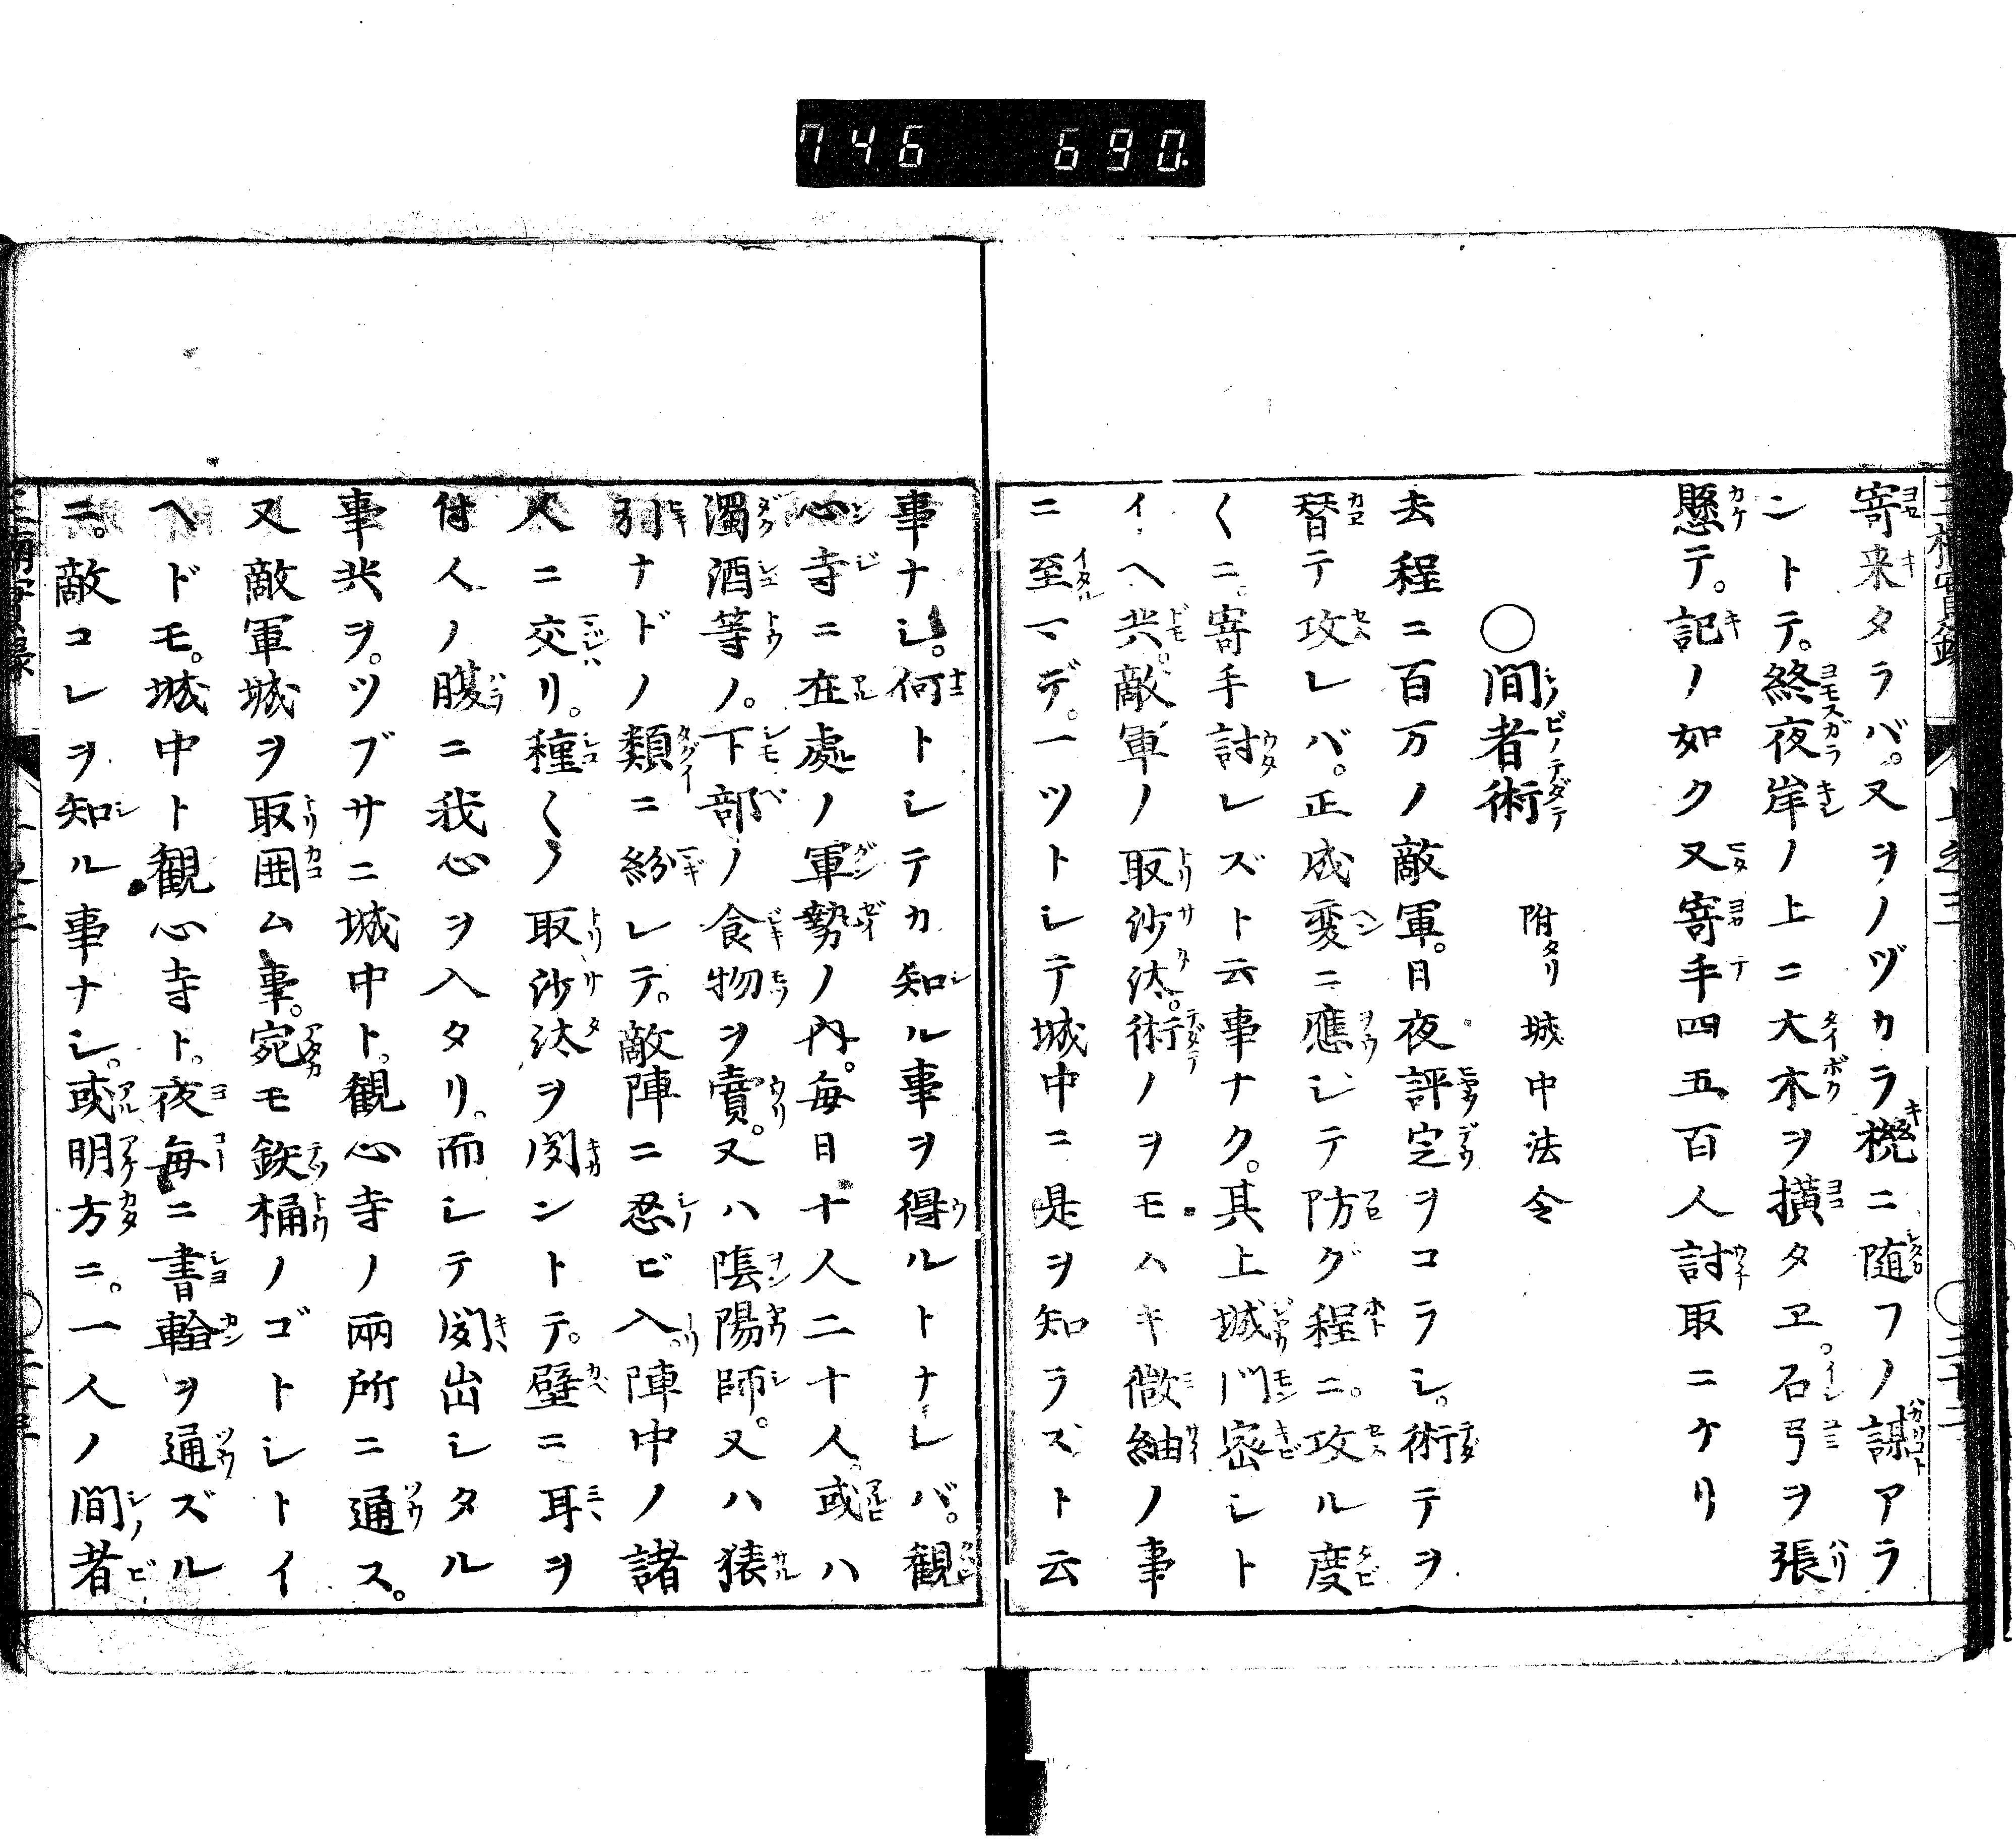 746 690.
寄来タラバ。又ヲノヅカラ機ニ随フノ謀アラ
ントテ。終夜岸ノ上ニ大木ヲ横タヱ。石弓ヲ張
懸テ。記ノ如ク又寄手四五百人討取ニケリ
○間者術 附タリ城中法令
去程ニ百万ノ敵軍。日夜評定ヲコラシ。術テヲ
替テ攻レバ。正成変ニ應ジテ防グ程ニ。攻ル度
〱ニ。寄手討レズト云事ナク。其上城門密シト
イヘ共。敵軍ノ取沙汰。術ノヲモハキ微細ノ事
ニ至マデ。一ツトシテ城中ニ是ヲ知ラズト云
事ナシ。何トシテカ知ル事ヲ得ルトナレバ。観
心寺ニ在處ノ軍勢ノ内。毎日十人二十人。或ハ
濁酒等ノ。下部ノ食物ヲ賣。又ハ陰陽師。又ハ猿
引ナドノ類ニ紛レテ。敵陣ニ忍ビ入。陣中ノ諸
人ニ交リ。種〱ノ取沙汰ヲ聞ントテ。壁ニ耳ヲ
付人ノ腹ニ我心ヲ入タリ。而シテ聞出シタル
事共ヲ。ツブサニ城中ト。観心寺ノ兩所ニ通ス。
又敵軍城ヲ取囲ム事。宛モ鉄桶ノゴトシトイ
ヘドモ。城中ト観心寺ト。夜毎ニ書翰ヲ通ズル
ニ。敵コレヲ知ル事ナシ。或明方ニ。一人ノ間者